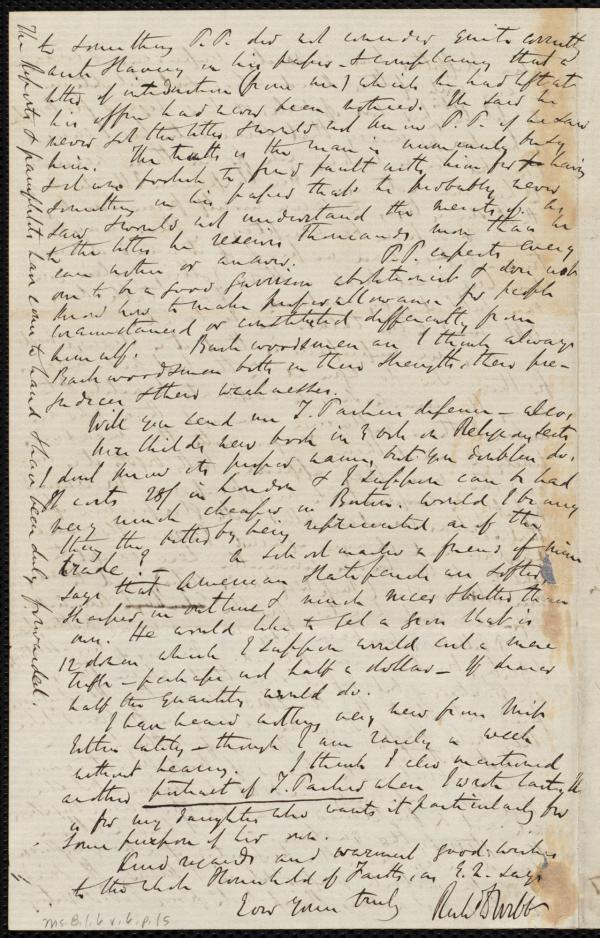 to something P.P. did not consider quite correct
anti Slavery in his paper – & complaining that a
letter of introduction (from me) which he had left at
his office had never been noticed. He said he
never got the letter & would not know P.P. if he saw
him. The truth is the man is immensely busy
to find fault with him for having
something in his paper that he probably never
saw & would not understand the merits of. As
to the letter he receives thousands more than he
can notice or answer. P.P. expects every
one to be a good Garrison abolitionist & does not
know how to make proper allowance for people
circumstanced or constituted differently from
himself. Backwoodsmen are I think always
Backwoodsmen both in their strength, their pre-
judices & their weaknesses.
Will you send me T. Parkers defence – also,
Mrs Childs new book in 3 vols on Religious Sects
I dont know its proper name, but you doubtless do.
It costs 28/ in London & I suppose can be had
very much cheaper in Boston. Would I be any
thing the better by being represented as of the
trade? – A school master a friend of mine
says that American Slate pencils are softer
sharper in outline & much nicer & better than
ours. He would like to get a gross that is
12 dozen which I suppose would cost a mere
trifle – perhaps not half a dollar – If dearer
half the quantity would do.
I have heard nothing very new from Miss
Estlin lately – though I am rarely a week
without hearing. I think I also mentioned
another portrait of T. Parker when I wrote last. It
is for my daughter who wants it particularly for
some purpose of her own.
Kind regards and warmest good wishes
to the whole Household of Faith, as E.Q. says
Ever yours truly Richd D Webb
The Reports & pamphlets have come to hand & have been duly forwarded.
Ms. B.1.6 v.6, p.15